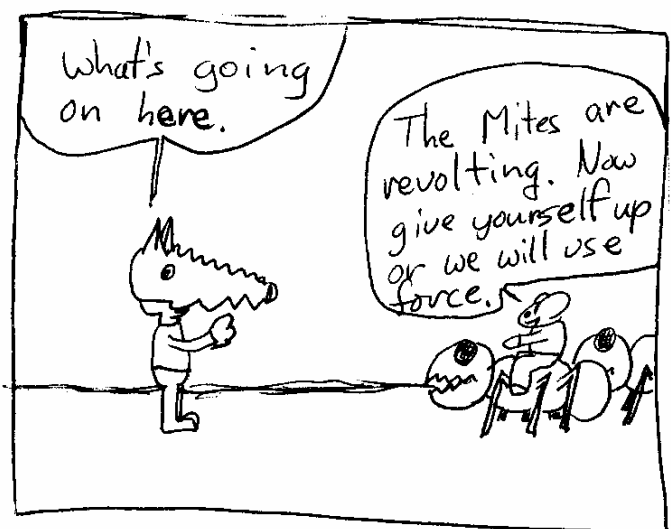 What's going
on here.
The Mites are
revolting. Now
give yourself up
or we will use
force.